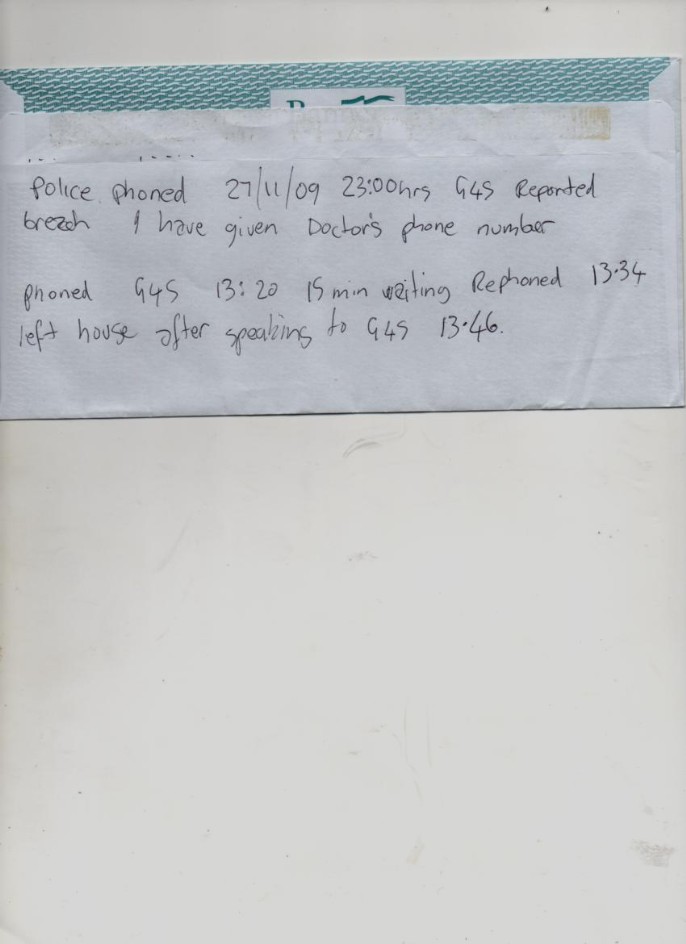 Police phoned 27/11/09 23:00hrs G4S Reported
breach I have given Doctor's phone number
phoned G4S 13:20 15 min waiting Rephoned 13.34
left house after speaking to G4S 13.46.